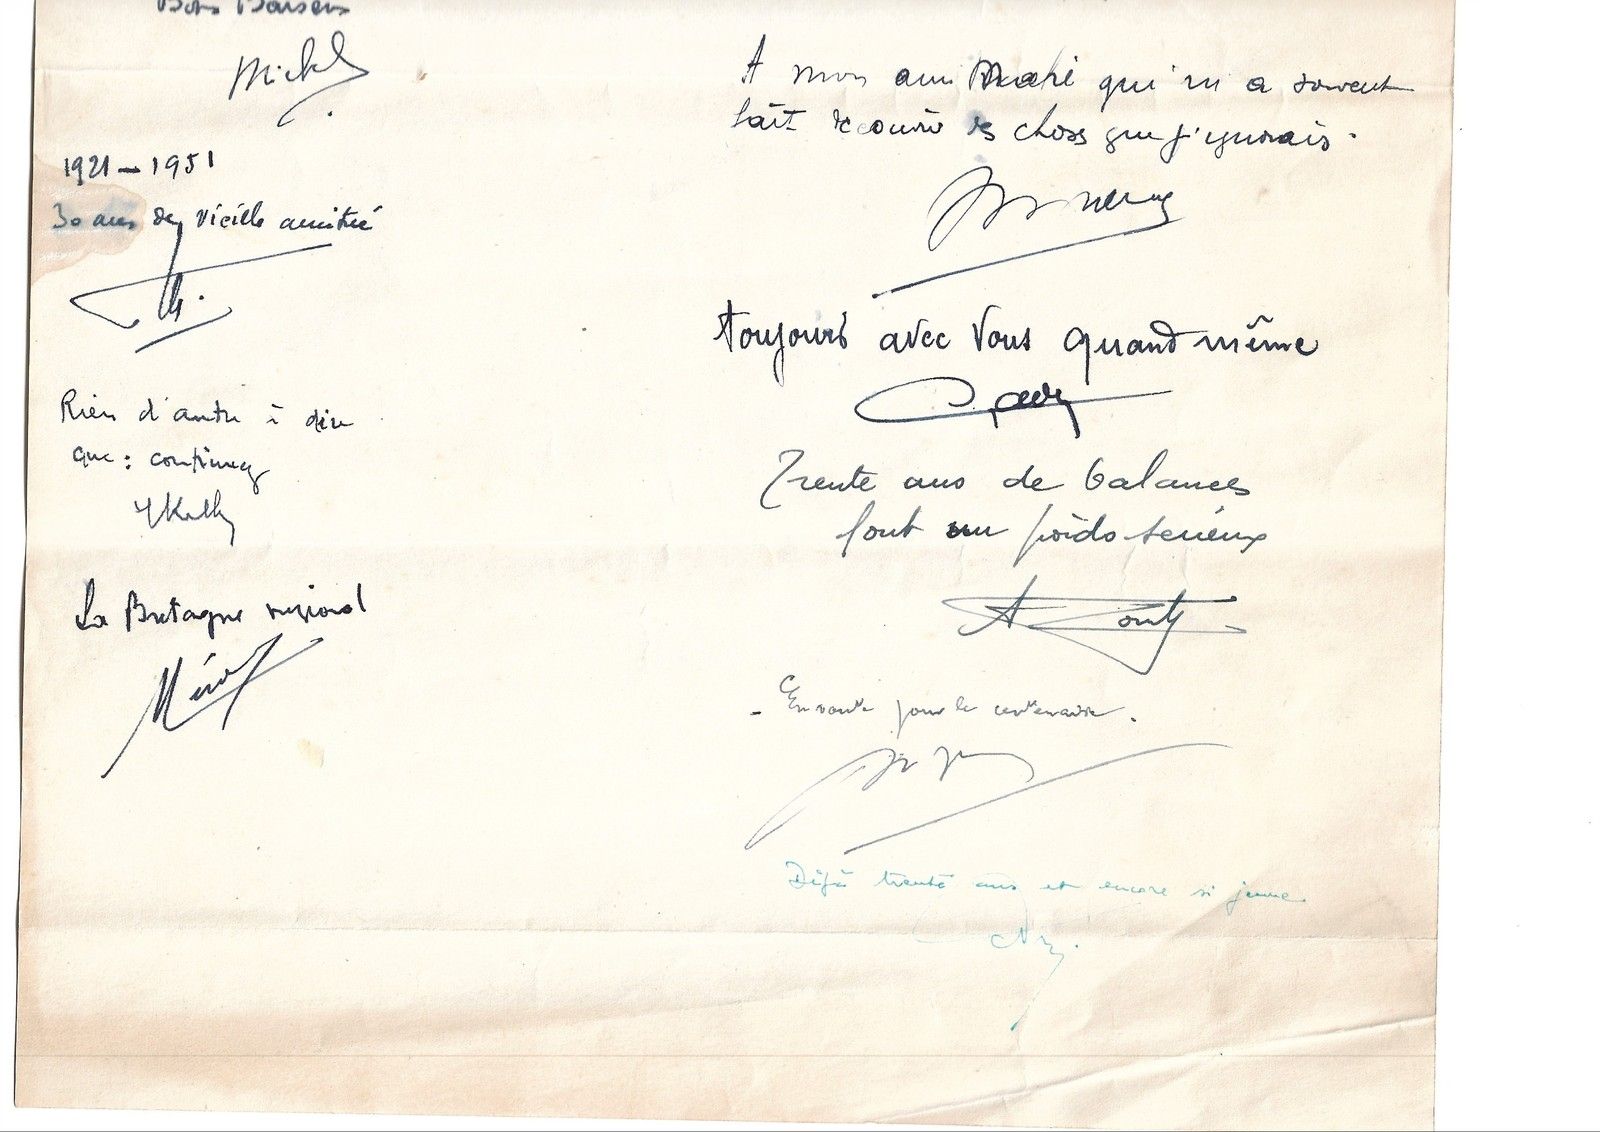 Bons Baisers
Michel
1921 - 1951
30 ans de vieille amitié
Rien d'autre à dire
que : continuez
YKelly
La Bretagne
A mon ami qui m'a souvent
fait découvrir des choses que j'ignorais.
toujours avec Vous quand même
Trente ans de balances
font un poids sérieux
En route pour le centenaire.
Déjà trente ans et encore si jeune